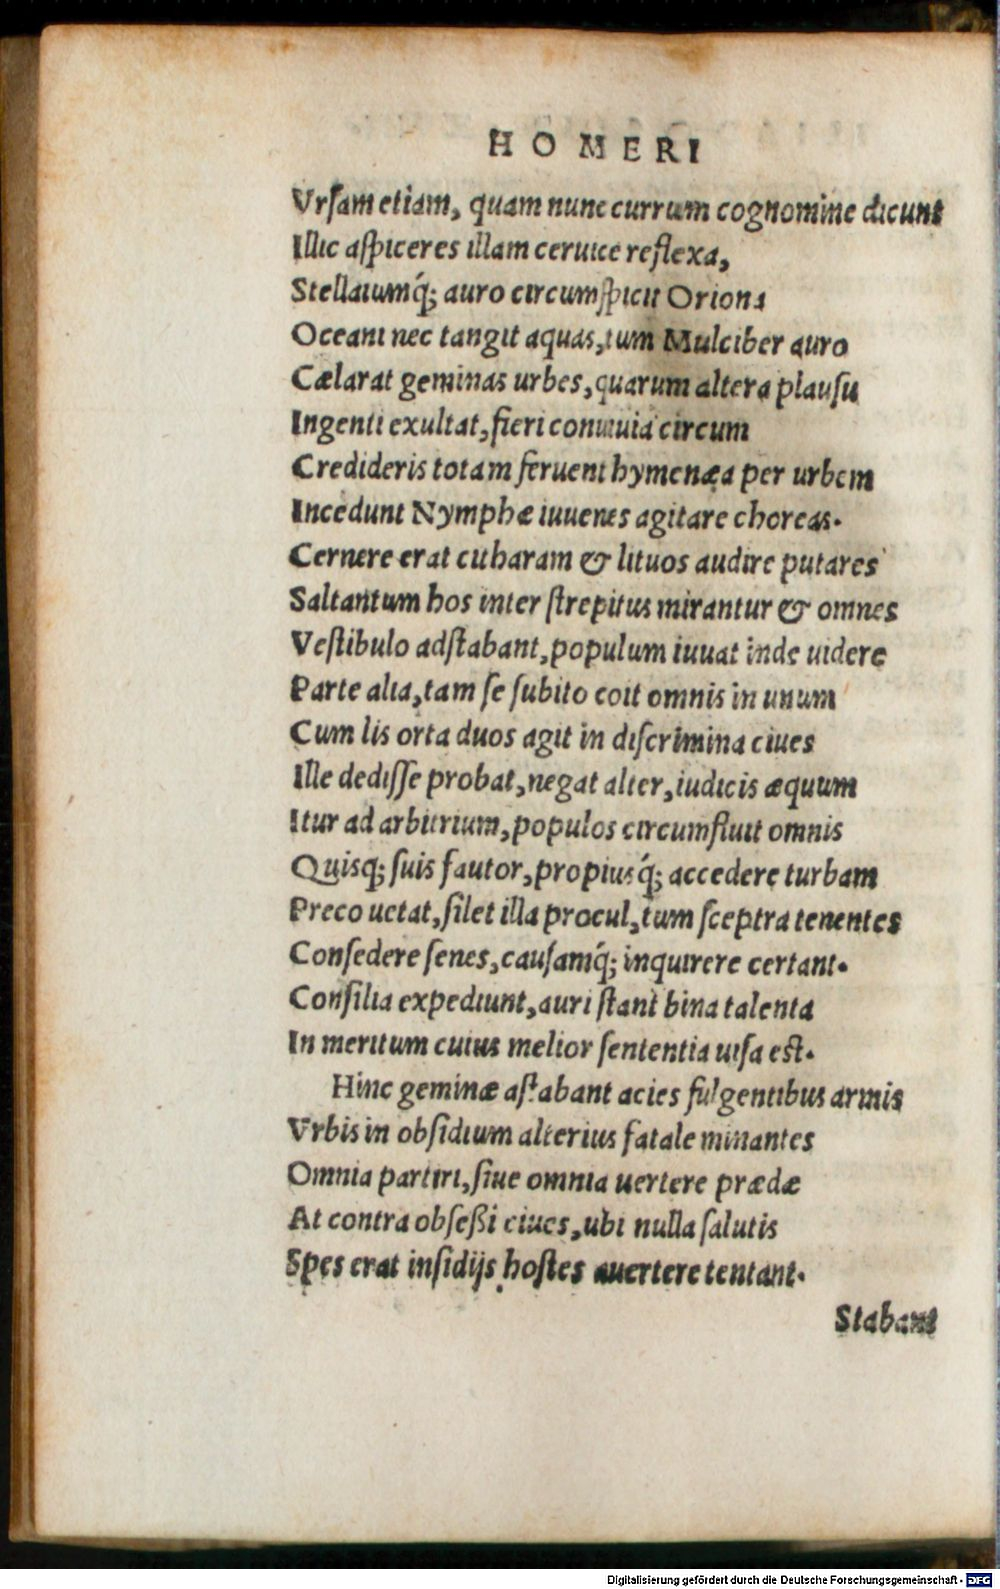 HOMERI
Vrſam etiam, quam nunc currum cognomine dicunt
Illic aſpiceres illam ceruice reflexa,
Stellatumq́; auro circumſpicit Oriona
Oceani nec tangit aquas, tum Mulciber auro
Cælarat geminas urbes, quarum altera plauſu
Ingenti exultat, fieri conuiuia circum
Credideris totam feruent hymenæa per urbem
Incedunt Nymphæ iuuenes agitare choreas.
Cernere erat citharam & lituos audire putares
Saltantum hos inter ſtrepitus mirantur & omnes
Veſtibulo adſtabant, populum iuuat inde uidere
Parte alia, tam ſe ſubito coit omnis in unum
Cum lis orta duos agit in diſcrimina ciues
Ille dediſſe probat, negat alter, iudicis æquum
Itur ad arbitrium, populos circumfluit omnis
Quisq; ſuis fautor, propiusq́; accedere turbam
Preco uetat, ſilet illa procul, tum ſceptra tenentes
Conſedere ſenes, cauſamq́; inquirere certant.
Conſilia expediunt, auri ſtant bina talenta
In meritum cuius melior ſententia uiſa eſt.
Hinc geminæ aſtabant acies fulgentibus armis
Vrbis in obſidium alterius fatale minantes
Omnia partiri, ſiue omnia uertere prædæ
At contra obſeßi ciues, ubi nulla ſalutis
Spes erat inſidijs hoſtes auertere tentant.
Stabant
Digitalisierung gefördert durch die Deutsche Forschungsgemeinschaft - DFG